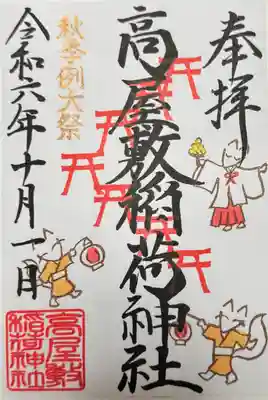 奉拝
高屋敷稲荷神社
秋季例大祭
令和六年十月一日
高屋敷
稲荷神社